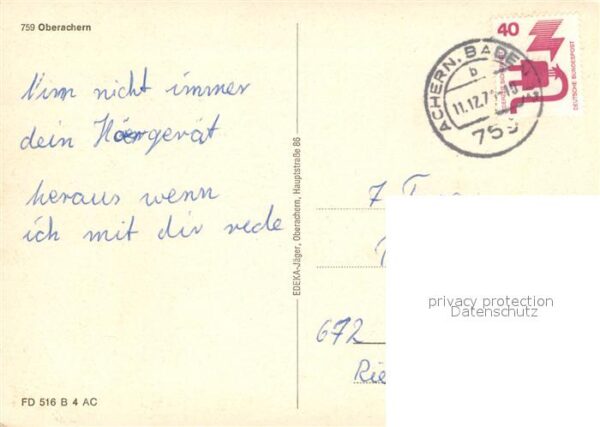 759 Oberachern
Nim nicht immer
dein Hörgerät
heraus wenn
ich mit dir rede
EDEKA-Jäger, Oberachern, Hauptstraße 86
40
DEUTSCHE BUNDESPOST
ACHERN, BADEN
b
11.12.7
759
7
672
Rie
privacy protection
Datenschutz
FD 516 B 4 AC